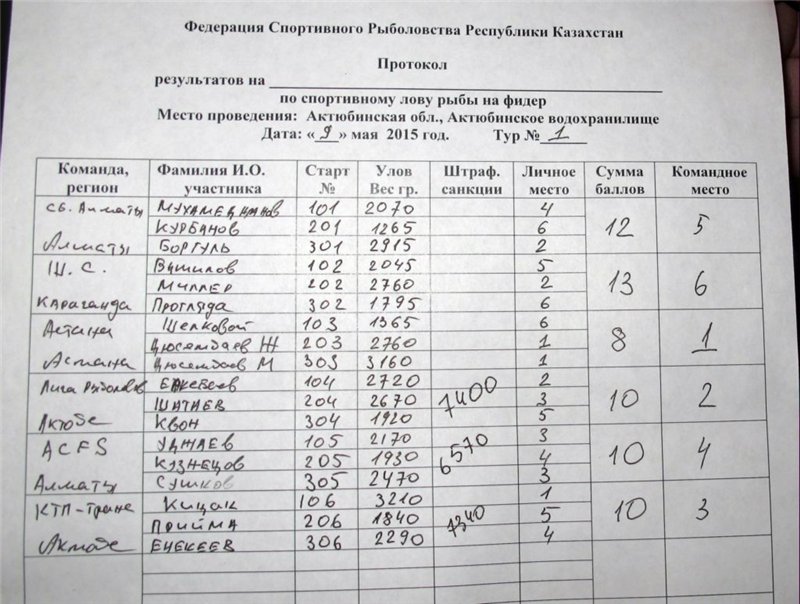 Федерация Спортивного Рыболовства Республики Казахстан
Протокол
результатов на
по спортивному лову рыбы на фидер
Место проведения: Актюбинская обл., Актюбинское водохранилище
Дата: «9» мая 2015 год. Тур № 1
Команда, регион Фамилия И.О. участника Старт № Улов Вес гр. Штраф. санкции Личное место Сумма баллов Командное место
сб. Алматы МУХАМЕДЖАНОВ 101 2070 4
КУРБАНОВ 201 1265 6 12 5
Алматы БОРГУЛЬ 301 2915 2
Ш. С. 102 2045 5
МИЛЛЕР 202 2760 2 13 6
КАРАГАНДА Прогляда 302 1795 6
Астана Шелковой 103 1365 6
Дюсембаев Ж 203 2760 1 8 1
Астана Дюсембаев М 303 3160 1
Лига Рыболовов 104 2720 2
ШАТАЕВ 204 2670 7400 3 10 2
Актобе КВОН 304 1920 5
ACFS 105 2170 3
КУЗНЕЦОВ 205 1930 6570 4 10 4
Алматы СУШКОВ 305 2470 3
КТП-транс Кицак 106 3210 1
ПРИЙМА 206 1840 7340 5 10 3
Актобе ЕНЕКЕЕВ 306 2290 4